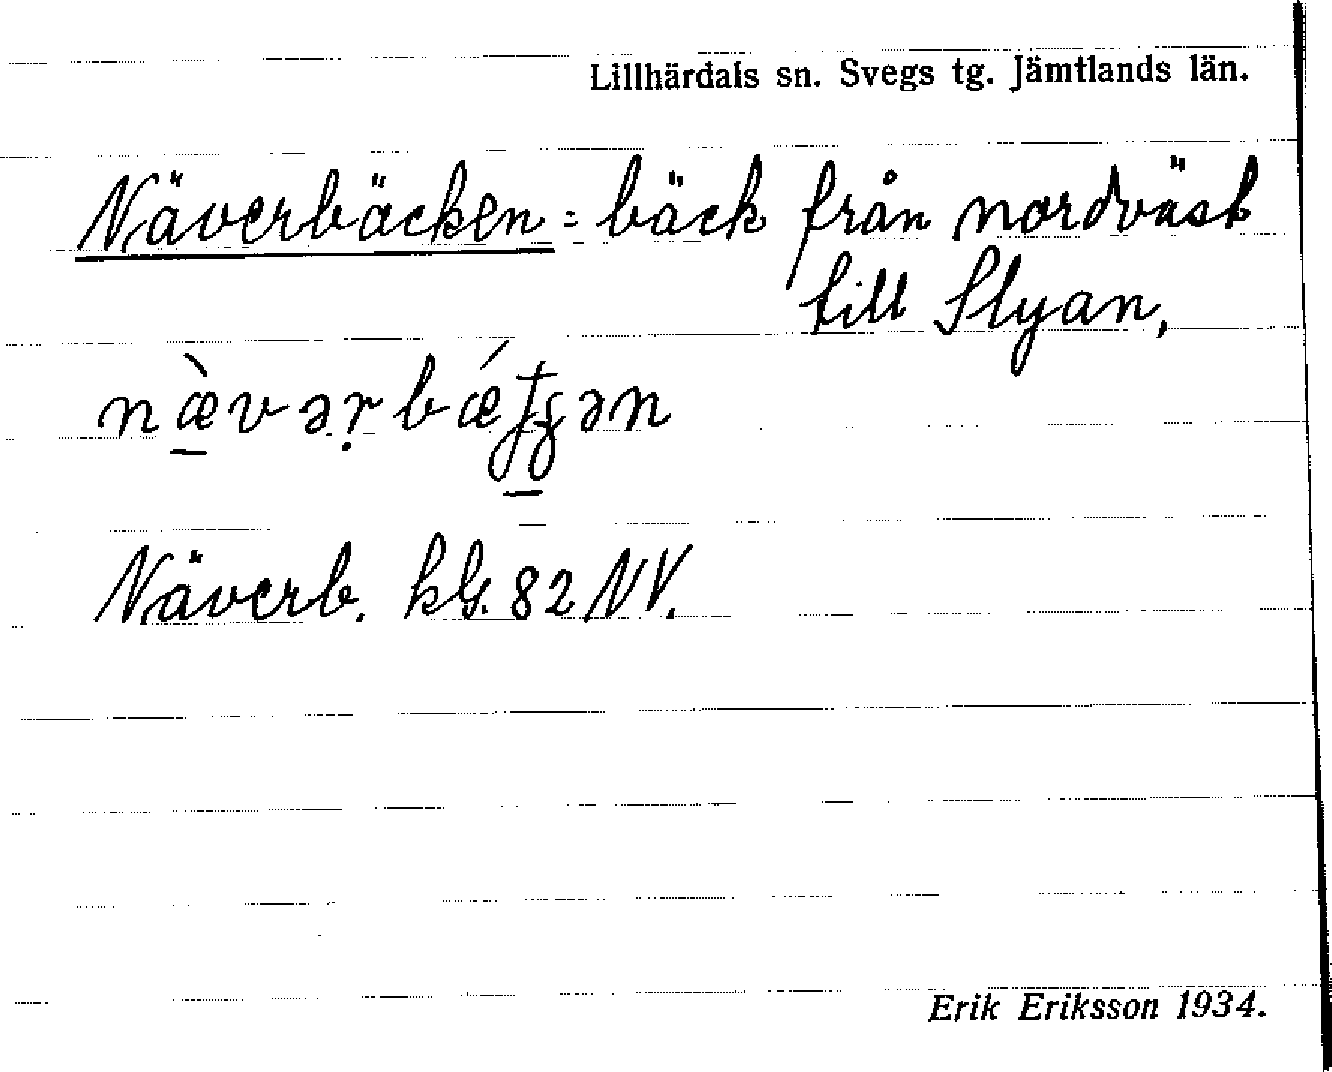 Lillhärdals sn. Svegs tg. Jämtlands län.
Näverbäcken = bäck från nordväst
till Slyan,
Näverb. kG. 82 NV.
Erik Eriksson 1934.